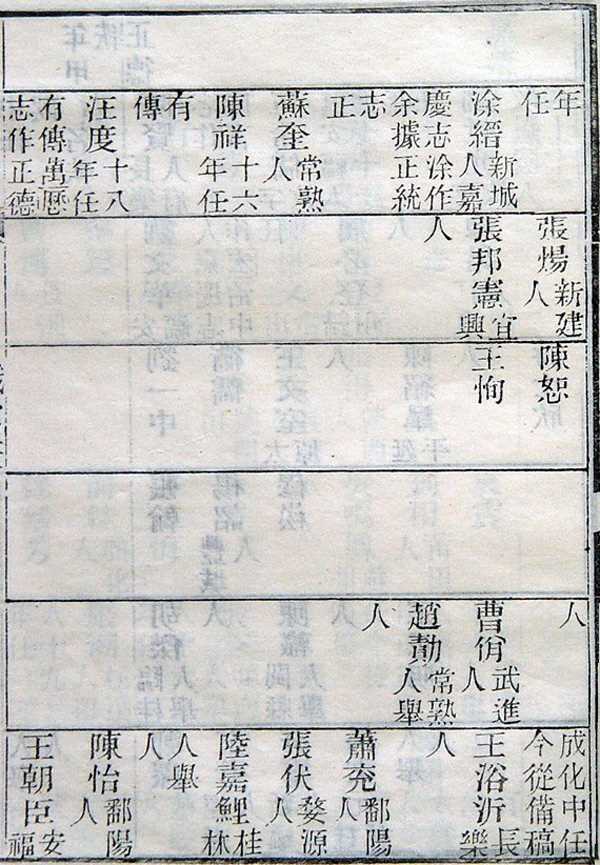 年任
涂縉新城人嘉
慶志涂作余據正統
志正
蘇奎常熟人
陳祥十六年任
有傳
汪度十八年任
有傳萬曆志作正德
張煬新建人
張邦憲宜興
人
陳恕
王恂
人
曹佾武進人
趙勣常熟人舉
人
成化中任今從備稿
王浴沂長樂
人
蕭充鄱陽人
張伏婺源人
陸嘉鯉桂林
人舉人
陳怡鄱陽人
王朝臣安福